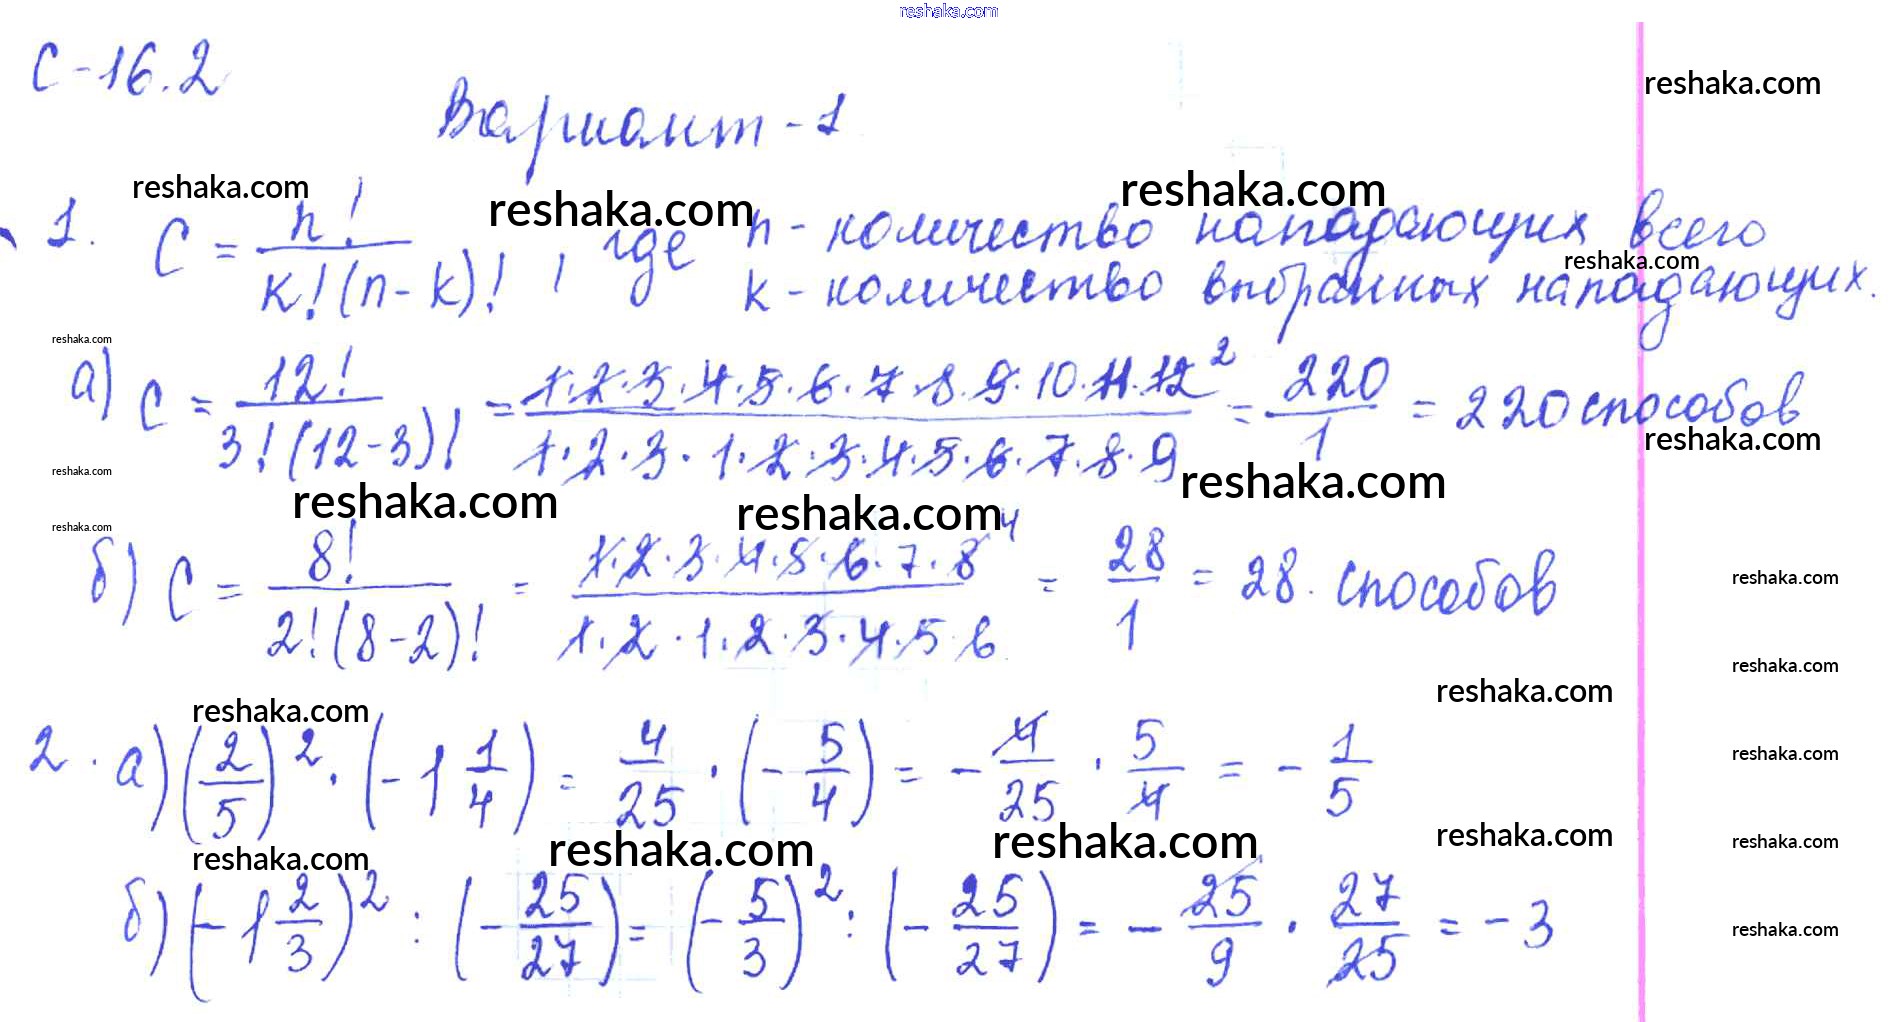 reshaka.com
С-16.2
reshaka.com
Вариант-1
reshaka.com reshaka.com reshaka.com
1. C = n! / k!(n-k)! , где n - количество нападающих всего
reshaka.com
k - количество выбранных нападающих.
reshaka.com
а) C = 12! / 3!(12-3)! = 1·2·3·4·5·6·7·8·9·10·11·12² / 1·2·3·1·2·3·4·5·6·7·8·9 = 220/1 = 220 способов
reshaka.com
reshaka.com reshaka.com reshaka.com reshaka.com
reshaka.com
б) C = 8! / 2!(8-2)! = 1·2·3·4·5·6·7·8⁴ / 1·2·1·2·3·4·5·6 = 28/1 = 28. способов
reshaka.com
reshaka.com
reshaka.com reshaka.com
2. а) (2/5)² · (-1 1/4) = 4/25 · (-5/4) = -4/25 · 5/4 = -1/5
reshaka.com
reshaka.com reshaka.com reshaka.com reshaka.com reshaka.com
б) (-1 2/3)² : (-25/27) = (-5/3)² : (-25/27) = -25/9 · 27/25 = -3
reshaka.com